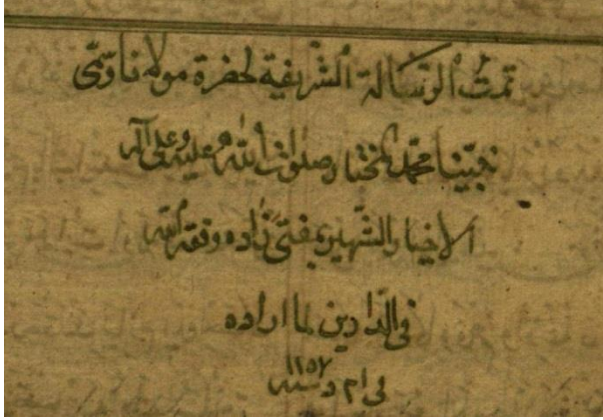 تمت الرسالة الشريفية لحضرة مولانا وسمى
نبينا محمد المختار صلوات الله عليه وعلى آله
الاخيار الشهير بمفتى زاده وفقه الله
فى الدارين لما اراده
فى ام د سنه ١١٥٧